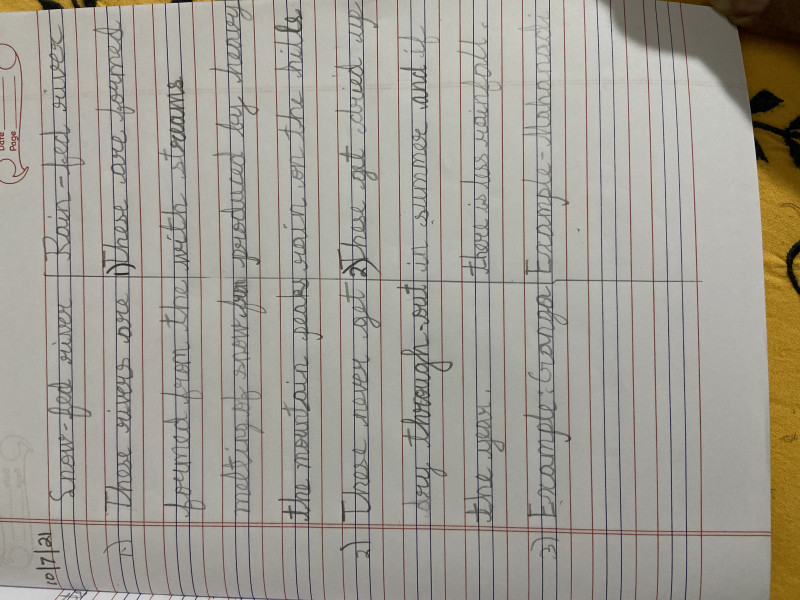 Date
Page
10/7/21
Snow-fed river Rain-fed river
1) These rivers are 1) These are formed
formed from the with streams
melting of snow from produced by heavy
the mountain peaks rain on the hills
2) These never get 2) These get dried up
dry through-out in summer and if
the year. there is less rainfall.
3) Example: Ganga Example - Mahanadi